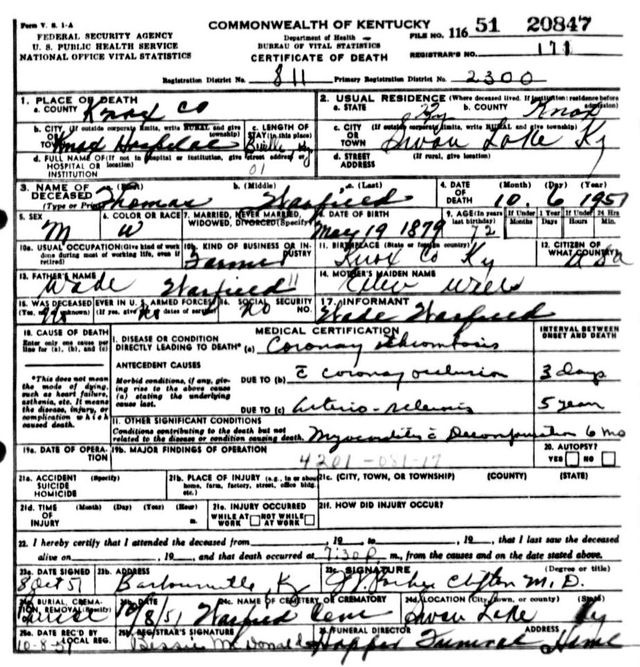 Form V. S. 1-A
COMMONWEALTH OF KENTUCKY
FILE NO. 116 51 20847
FEDERAL SECURITY AGENCY
U. S. PUBLIC HEALTH SERVICE
NATIONAL OFFICE VITAL STATISTICS
Department of Health
BUREAU OF VITAL STATISTICS
CERTIFICATE OF DEATH
REGISTRAR'S NO. 171
Registration District No. 811 Primary Registration District No. 2300
1. PLACE OF DEATH
a. COUNTY Knox Co
2. USUAL RESIDENCE (Where deceased lived. If institution: residence before admission)
a. STATE Ky b. COUNTY Knox
b. CITY (If outside corporate limits, write RURAL and give township) OR TOWN Knox Hospital
c. LENGTH OF STAY (in this place)
c. CITY (If outside corporate limits, write RURAL and give township) OR TOWN Swan Lake Ky
d. FULL NAME OF (If not in hospital or institution, give street address or location) HOSPITAL OR INSTITUTION 01
d. STREET ADDRESS (If rural, give location)
3. NAME OF DECEASED (Type or Print)
a. (First) Thomas b. (Middle) c. (Last) Warfield
4. DATE OF DEATH (Month) (Day) (Year) 10. 6 1951
5. SEX M
6. COLOR OR RACE W
7. MARRIED, NEVER MARRIED, WIDOWED, DIVORCED (Specify)
8. DATE OF BIRTH May 19 1879
9. AGE (In years last birthday) 72 If Under 1 Year Months Days If Under 24 Hrs Hours Min.
10a. USUAL OCCUPATION (Give kind of work done during most of working life, even if retired)
10b. KIND OF BUSINESS OR INDUSTRY Farmer
11. BIRTHPLACE (State or foreign country) Knox Co Ky
12. CITIZEN OF WHAT COUNTRY? USA
13. FATHER'S NAME Wade Warfield
14. MOTHER'S MAIDEN NAME
15. WAS DECEASED EVER IN U. S. ARMED FORCES? (Yes, no, or unknown) (If yes, give war or dates of service) No
16. SOCIAL SECURITY NO. No
17. INFORMANT Wade Warfield
18. CAUSE OF DEATH
Enter only one cause per line for (a), (b), and (c)
MEDICAL CERTIFICATION
INTERVAL BETWEEN ONSET AND DEATH
I. DISEASE OR CONDITION DIRECTLY LEADING TO DEATH* (a) Coronay thrombosis
ANTECEDENT CAUSES
*This does not mean the mode of dying, such as heart failure, asthenia, etc. It means the disease, injury, or complication which caused death.
Morbid conditions, if any, giving rise to the above cause (a) stating the underlying cause last.
DUE TO (b) c̄ coronay occlusion 3 days
DUE TO (c) Arterio-sclerosis 5 year
II. OTHER SIGNIFICANT CONDITIONS
Conditions contributing to the death but not related to the disease or condition causing death. Myocarditis c̄ Decompensation 6 mo
19a. DATE OF OPERATION
19b. MAJOR FINDINGS OF OPERATION 4201-051-17
20. AUTOPSY? YES NO
21a. ACCIDENT SUICIDE HOMICIDE (Specify)
21b. PLACE OF INJURY (e.g., in or about home, farm, factory, street, office bldg., etc.)
21c. (CITY, TOWN, OR TOWNSHIP) (COUNTY) (STATE)
21d. TIME OF INJURY (Month) (Day) (Year) (Hour) m.
21e. INJURY OCCURRED WHILE AT WORK NOT WHILE AT WORK
21f. HOW DID INJURY OCCUR?
22. I hereby certify that I attended the deceased from , 19 to , 19 , that I last saw the deceased
alive on , 19 and that death occurred at 7:30P m., from the causes and on the date stated above.
23a. DATE SIGNED 8 Oct 51
23b. ADDRESS Barbourville, Ky
23c. SIGNATURE (Degree or title) Clifton M. D.
24a. BURIAL, CREMATION, REMOVAL (Specify) Burial
24b. DATE 10/8/51
24c. NAME OF CEMETERY OR CREMATORY Warfield Cem
24d. LOCATION (City, town, or county) (State) Swan Lake Ky
25a. DATE REC'D BY LOCAL REG. 10-8-51
25b. REGISTRAR'S SIGNATURE Bessie McDonald
26. FUNERAL DIRECTOR ADDRESS Hopper Funeral Home